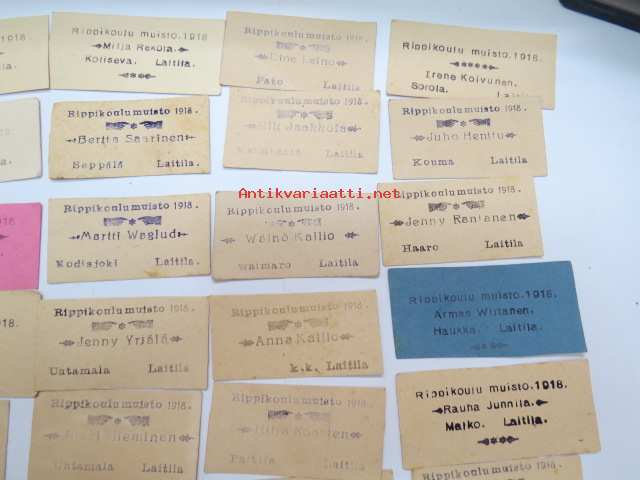 Rippikoulu muisto. 1918
Milja Rekola.
Kouseva. Laitila.
Rippikoulumuisto 1918.
Eine Leino
Pato Laitila
Rippikoulu muisto. 1918.
Irene Koivunen.
Sorola.
Rippikoulumuisto 1918.
Berjta Saarinen
Seppälä Laitila.
Rippikoulumuisto 1918.
Jaakkola
Laitila
Rippikoulumuisto 1918.
Juho Henttu
Kouma Laitila
Antikvariaatti.net
Rippikoulumuisto 1918.
Martti Waglud
Kodisjoki Laitila.
Rippikoulumuisto 1918.
Wäinö Kallio
Walmaro Laitila
Rippikoulumuisto 1918.
Jenny Rantanen
Haaro Laitila
1918.
Rippikoulumuisto 1918.
Jenny Yrjälä
Uatamala Laitila
Rippikoulumuisto 1918.
Anna Kallio
k.k. Laitila
Rippikoulu muisto. 1918.
Arman Wiitanen.
Haukka. Laitila.
Rippikoulumuisto 1918.
Uatamala Laitila
Rippikoulumuisto 1918.
Laitila
Rippikoulu muisto. 1918.
Rauha Junnila.
Malko. Laitila.
Rippikoulumuisto 1918.